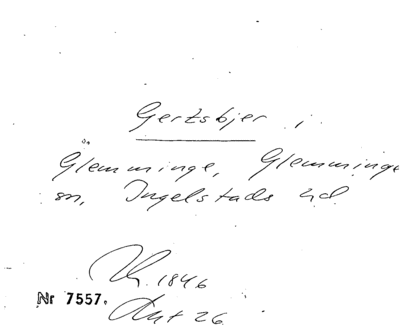 Gertsbjer i
Glemminge, Glemminge
sn, Ingelstads hd
1846
Nr 7557.
26